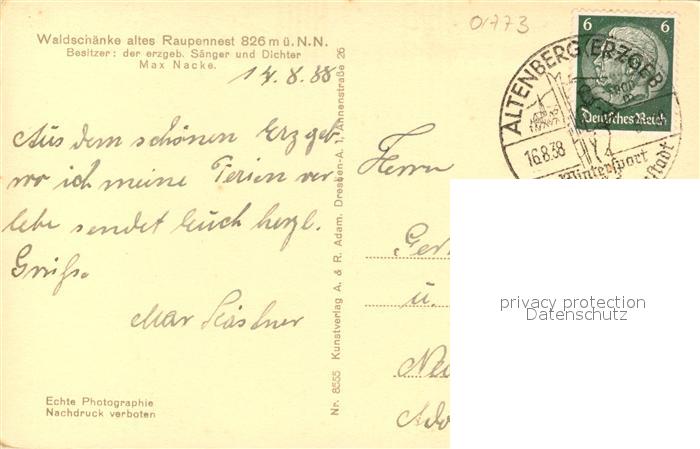 01773
Waldschänke altes Raupennest 826 m ü. N.N.
Besitzer: der erzgeb. Sänger und Dichter
Max Nacke.
14.8.38
Aus dem schönen Erzgeb
wo ich meine Ferien ver
lebe sendet Euch herzl.
Grüße.
Max Kästner
Echte Photographie
Nachdruck verboten
Nr. 8555 Kunstverlag A. & R. Adam, Dresden-A. 1, Annenstraße 26
6 6
Deutsches Reich
ALTENBERG (ERZGEB
16.8.38
Wintersport
stadt
Herrn
Ger
u.
Neu
Ado
privacy protection
Datenschutz